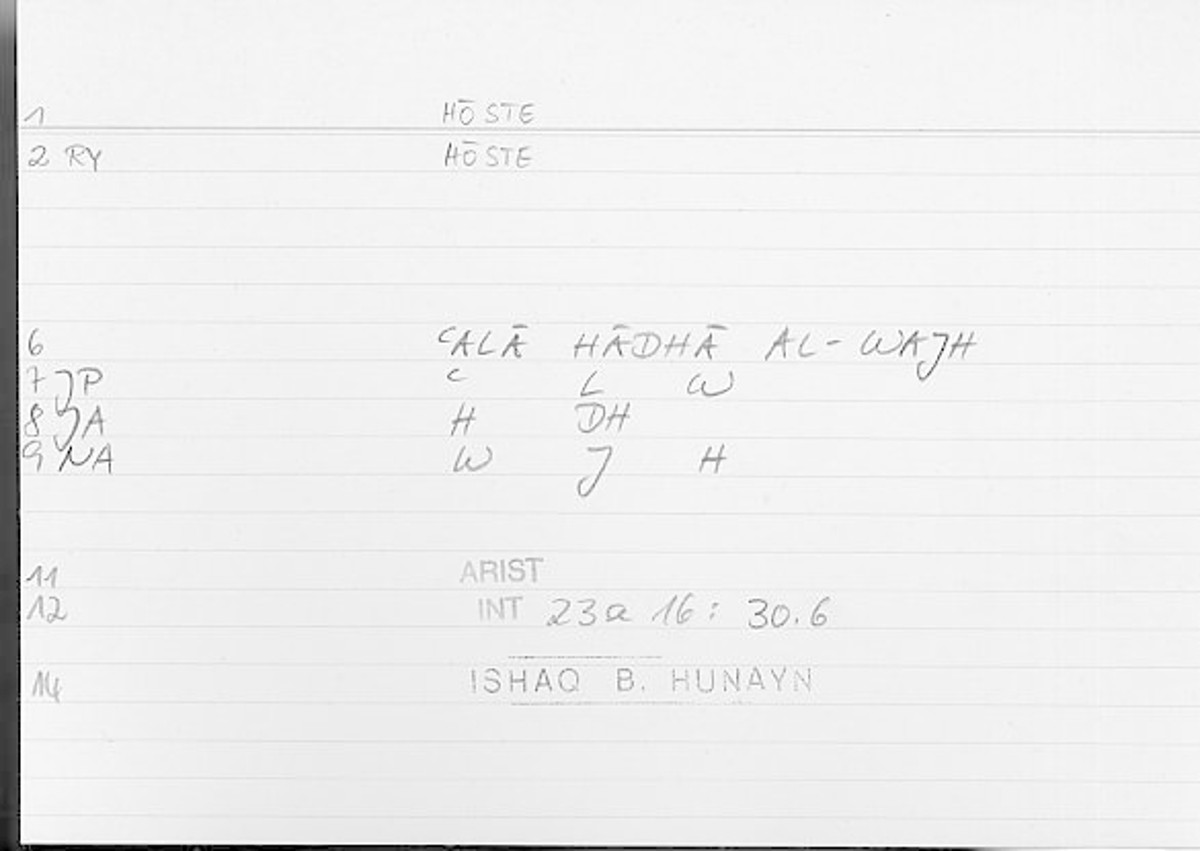 1 HŌSTE
2 RY HŌSTE
6 ʿALĀ HĀDHĀ AL-WAJH
7 JP ʿ L W
8 JA H DH
9 NA W J H
11 ARIST
12 INT 23a 16: 30.6
14 ISHAQ B. HUNAYN